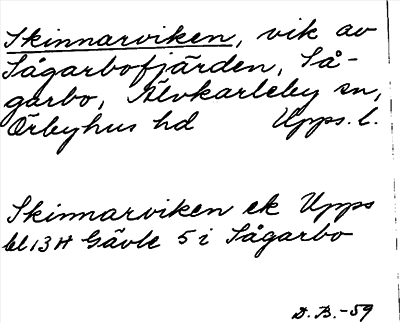 Skinnarviken, vik av
Sågarbofjärden, Så-
garbo, Älvkarleby sn,
Örbyhus hd Upps. l.
Skinnarviken ek Upps
bl 13 H Gävle 5 i Sågarbo
D. B. -59